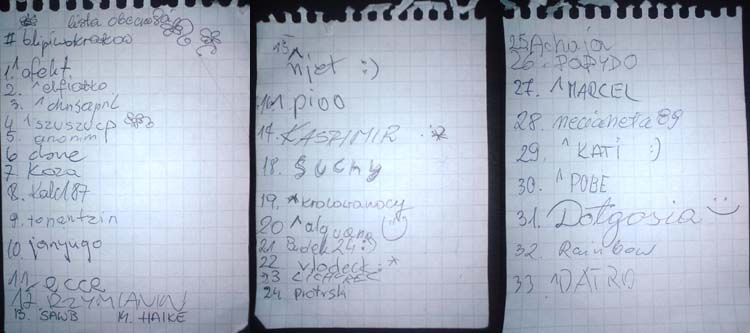 lista obecności
#blipiwokrakow
1. ^ofelt
2. ^elfiatko
3. ^chnsapril
4. ^szuszucp
5. anonim
6. done
7. Koza
8. Kald87
9. tonantzin
10. janyugo
11. ecce
12. RZYMIANIN
13. SAWB 14. HAIKE
15. ^njet :)
16. ^pioo
17. KASHMIR :*
18. SUCHY
19. ^krolowanocy
20 ^alquana
21. Dudek24 :)
22 vlodeck :*
23
24. piotrsk
25 Achaja
26. POPYDO
27. ^MARCEL
28. neciameta89
29. ^KATI :)
30. ^POBE
31. Dotgosia
32. Rainbow
33. DATRO